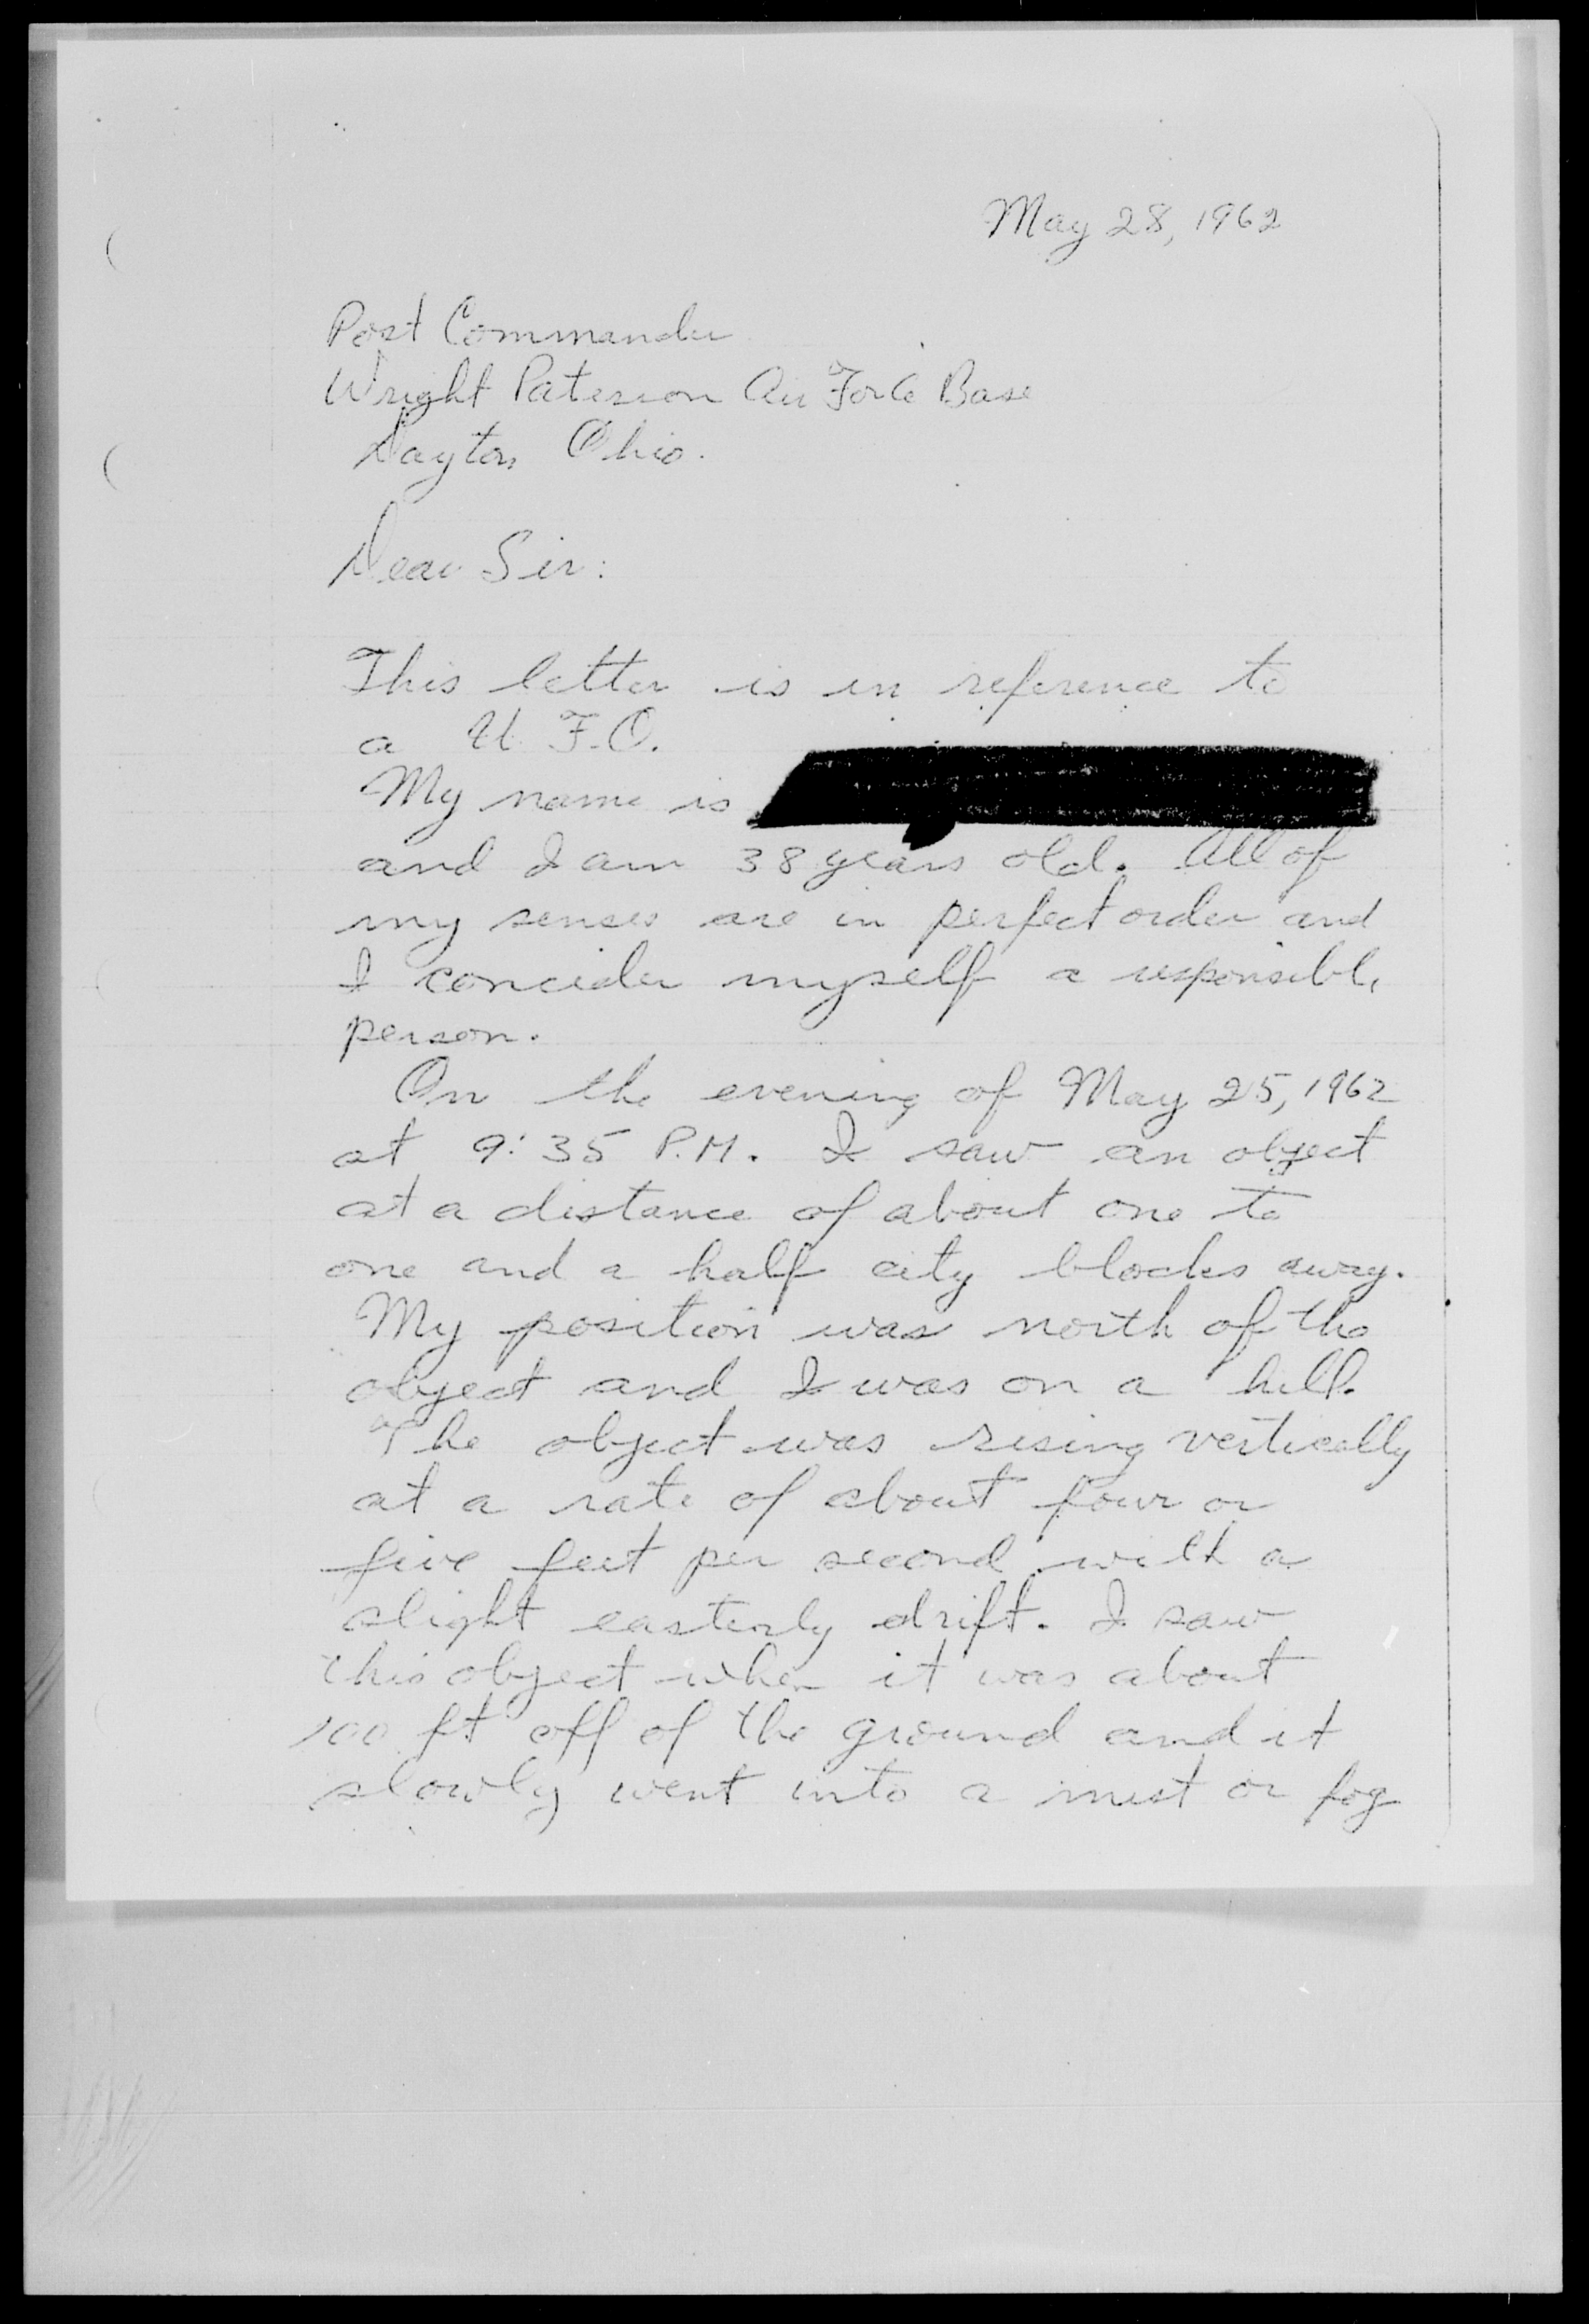 May 28, 1962
Post Commander
Wright Paterson Air Force Base
Dayton Ohio.
Dear Sir:
This letter is in reference to
a U.F.O.
My name is
and I am 38 years old. All of
my senses are in perfect order and
I concider myself a responsible
person.
On the evening of May 25, 1962
at 9:35 P.M. I saw an object
at a distance of about one to
one and a half city blocks away.
My position was north of the
object and I was on a hill.
The object was rising vertically
at a rate of about four or
five feet per second with a
slight easterly drift. I saw
this object when it was about
100 ft off of the ground and it
slowly went into a mist or fog